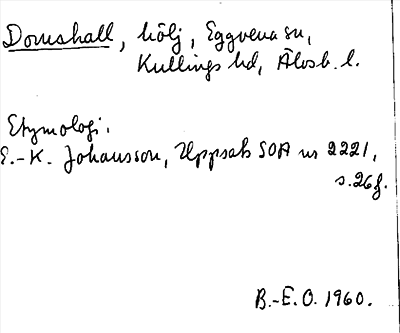 Domshall, hölj, Eggvena sn,
Kullings hd, Älvsb. l.
Etymologi.
E.-K. Johansson, Uppsats SOA nr 2221,
s.26f.
B.-E.O. 1960.